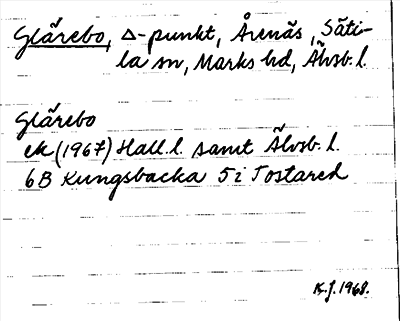 Glärebo, Δ-punkt, Årenäs, Säti-
la sn, Marks hd, Älvsb. l.
Glärebo
ek (1967) Hall. l. samt Älvsb. l.
6B Kungsbacka 5i Tostared
K.J. 1968.